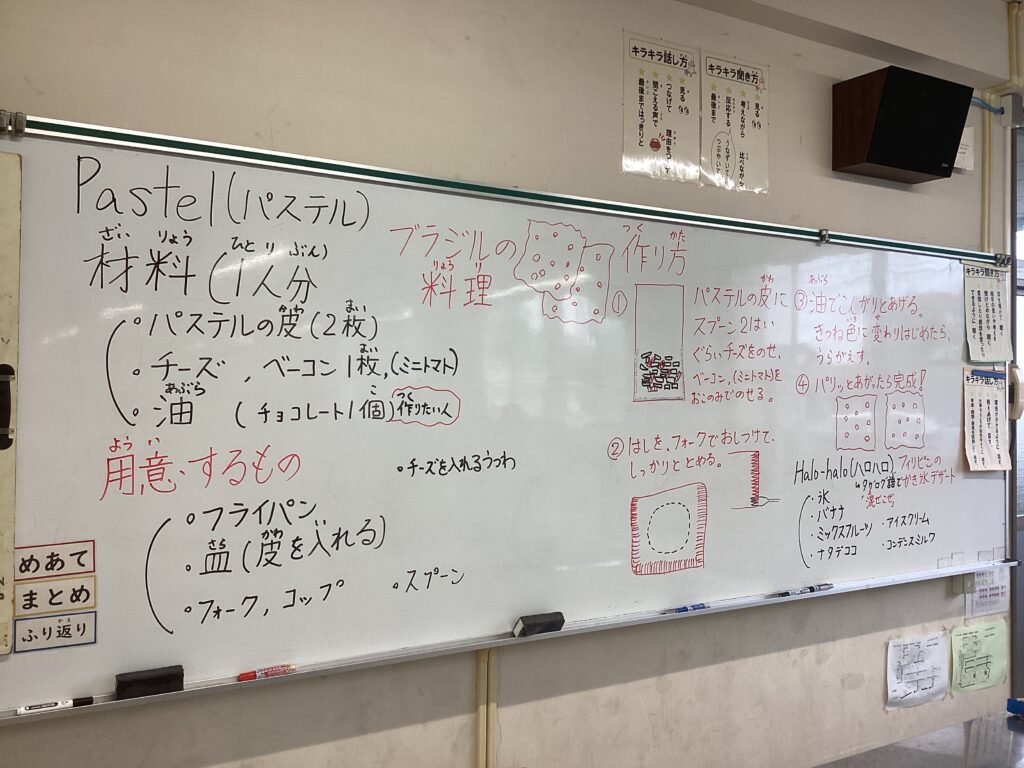 Pastel(パステル)
材料(1人分
ざいりょう ひとり ぶん)
・パステルの皮(2枚)
かわ まい
・チーズ、ベーコン1枚,(ミニトマト)
まい
・油 (チョコレート1個)作りたい人
あぶら こ つく
用意するもの
ようい
・チーズを入れるうつわ
・フライパン
・皿(皮を入れる)
さら かわ
・フォーク, コップ ・スプーン
ブラジルの
料理
りょうり
作り方
つく かた
①
パステルの皮に
かわ
スプーン2はい
ぐらいチーズをのせ、
ベーコン,(ミニトマト)を
おこのみでのせる。
②はしを、フォークでおしつけて、
しっかりととめる。
③油でこんがりとあげる。
あぶら
きつね色に変わりはじめたら、
うらがえす。
④パリッとあがったら完成!
Halo-halo(ハロハロ)フィリピンの
かき氷デザート
↳タガログ語で
"混ぜこぜ"
・氷
・バナナ
・ミックスフルーツ ・アイスクリーム
・ナタデココ ・コンデンスミルク
めあて
まとめ
ふり返り
かえ
キラキラ話し方
見る
つなげて 理由をつけて
聞こえる声で
最後まではっきりと
キラキラ聞き方
見る
考えながら 比べながら
反応する うなずいて つぶやいて
最後まで
キラキラ聞き方
キラキラ話し方